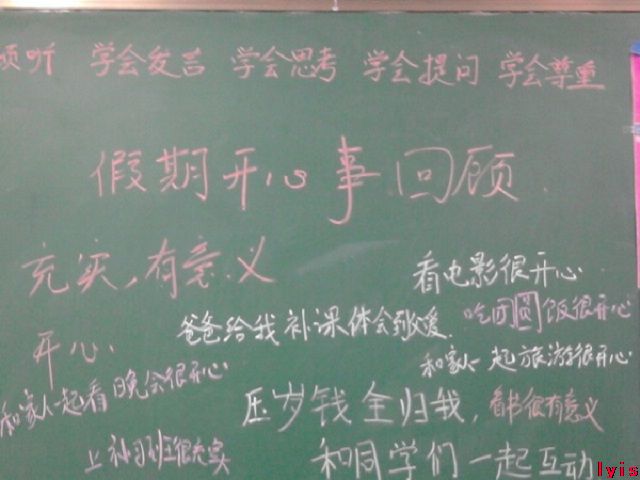 倾听 学会发言 学会思考 学会提问 学会尊重
假期开心事回顾
充实,有意义
看电影很开心
爸爸给我补课体会到父爱
吃团圆饭很开心
开心
和家人一起旅游很开心
和家人一起看晚会很开心
压岁钱全归我,
看书很有意义
上补习班很充实
和同学们一起互动
lyis